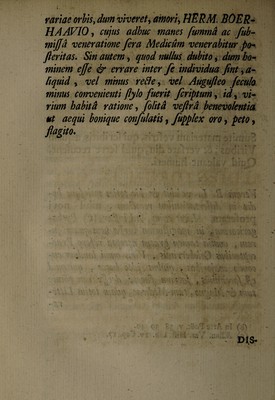 rariae orbis, dum viveret, amori, HERM. BOER-
HAAVIO, cujus adhuc manes summâ ac sub-
missâ veneratione sera Medicûm venerabitur po-
steritas. Sin autem, quod nullus dubito, dum ho-
minem esse & errare inter se individua sint, a-
liquid, vel minus recte, vel Augusteo seculo
minus convenienti stylo fuerit scriptum, id, vi-
rium habitâ ratione, solitâ vestrâ benevolentiâ
ut aequi bonique consulatis, supplex oro, peto,
flagito.
DIS-